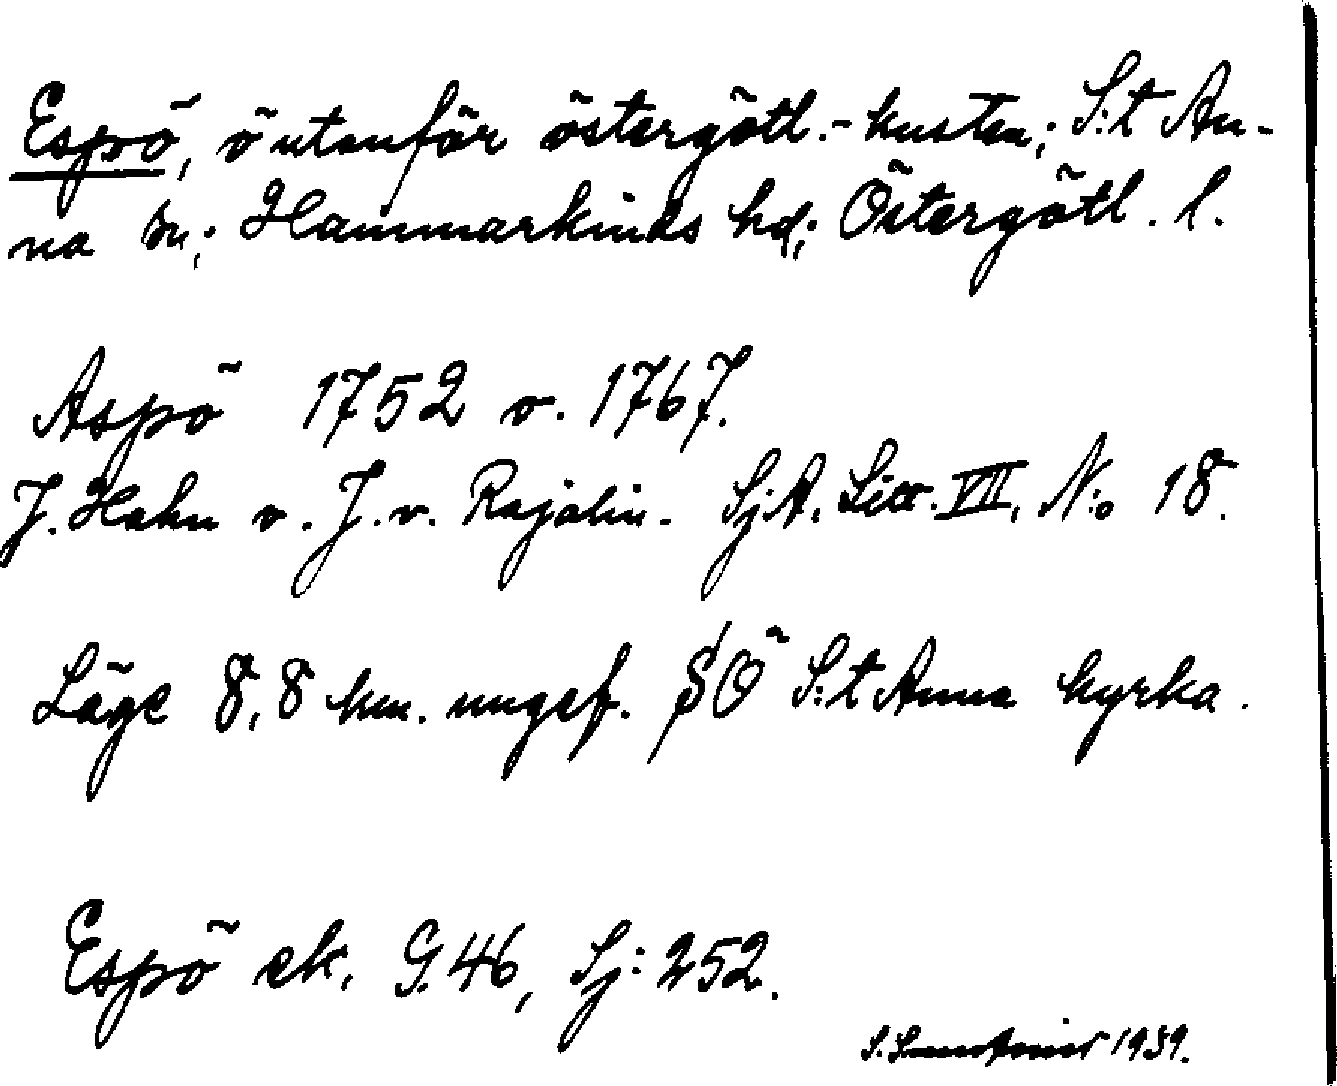 Espö, ö utanför östergötl.-kusten; S:t An-
na sn; Hammarkinds hd; Östergötl. l.
Aspö 1752 o. 1767.
J. Hahn o. J. v. Rajalin. SjA. Litt. VII, N:o 18.
Läge 8,8 km. ungef. SÖ S:t Anna kyrka.
Espö ek. G.46, Sj:252.
S. 1939.